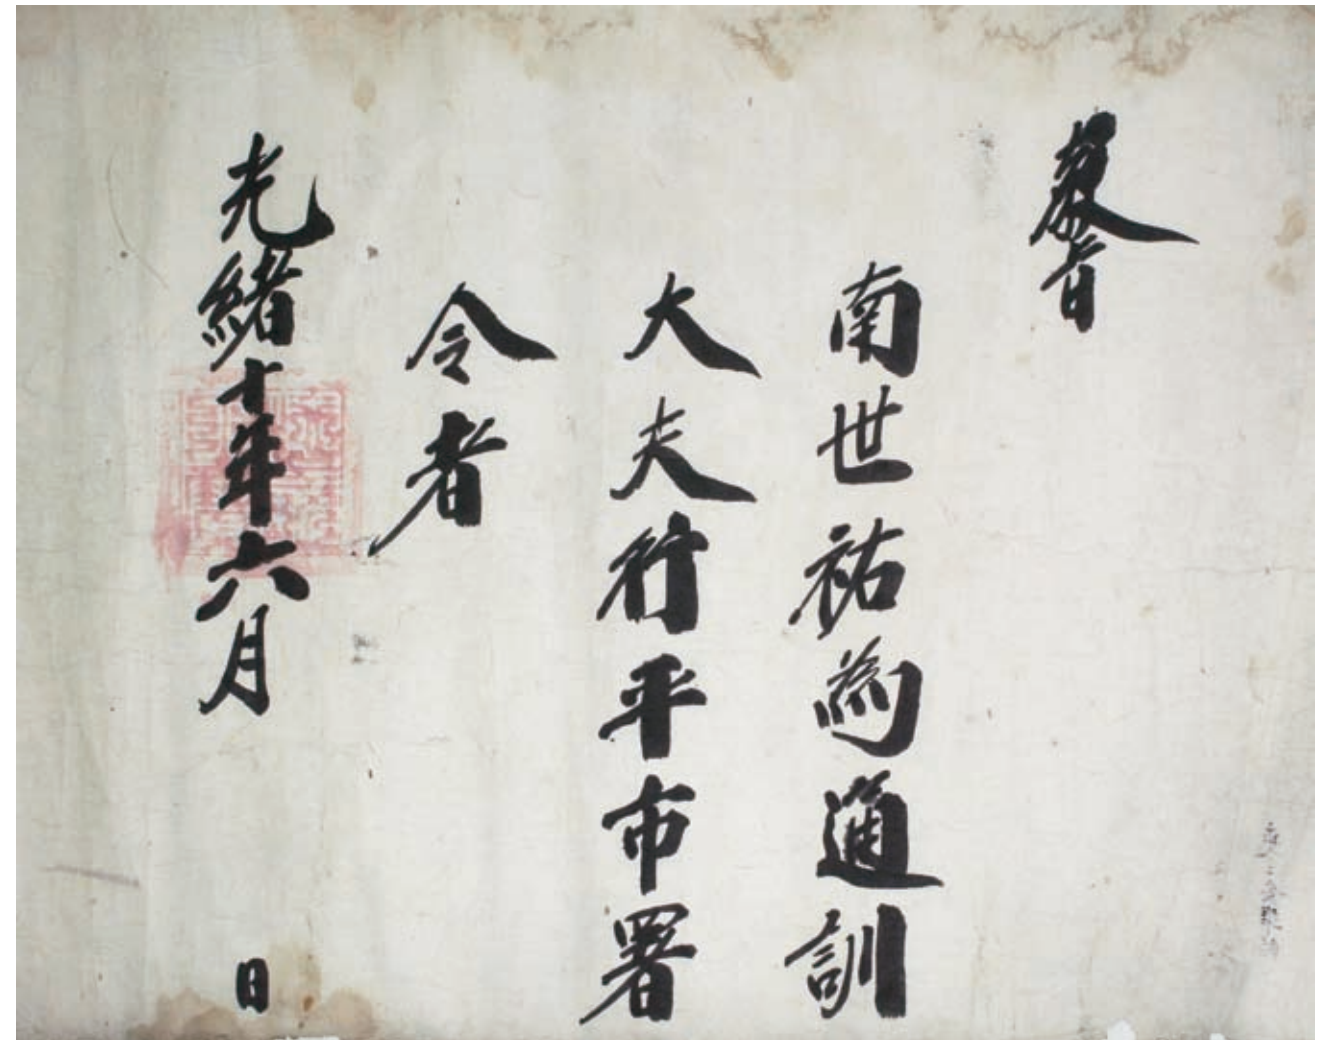 敎旨
南世祐爲通訓
大夫行平市署
令者
光緖十年六月 日